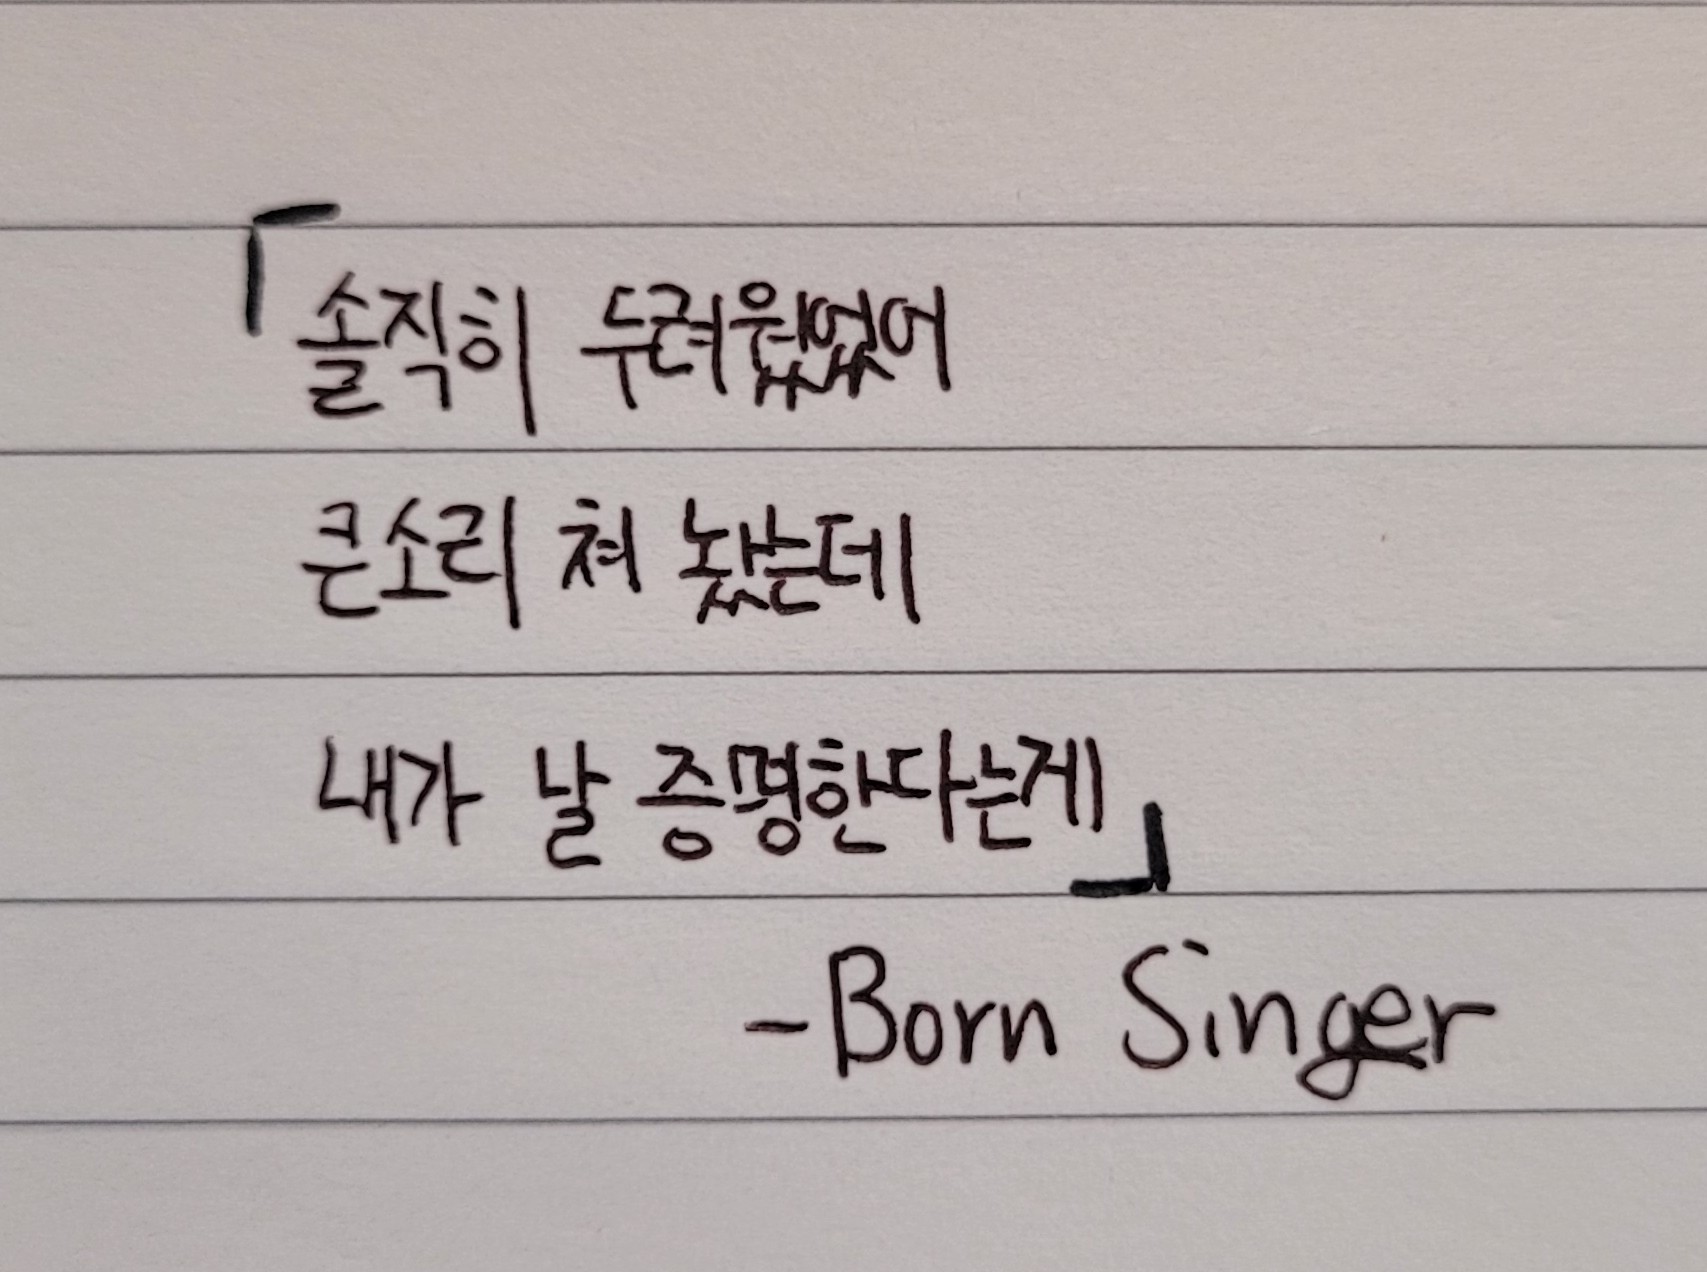 「솔직히 두려웠었어
큰소리 쳐 놨는데
내가 날 증명한다는게」
-Born Singer